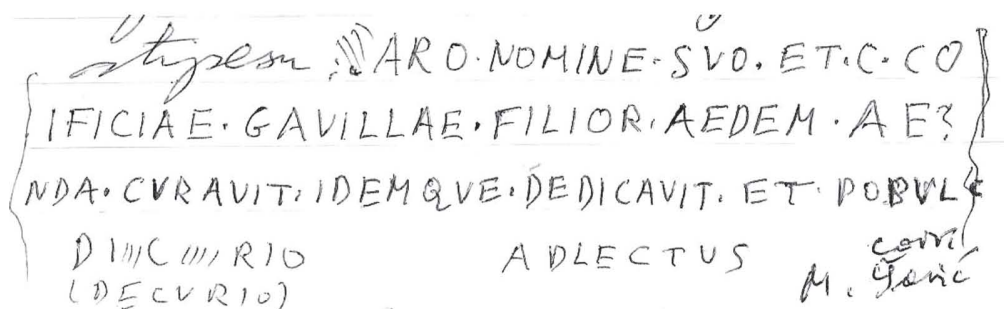 ARO·NOMINE·SVO·ET·C·CO
IFICIAE·GAVILLAE·FILIOR·AEDEM·AE?
NDA·CVRAVIT·IDEMQVE·DEDICAVIT·ET·POPVL
D///C////RIO ADLECTUS
(DECVRIO) M.